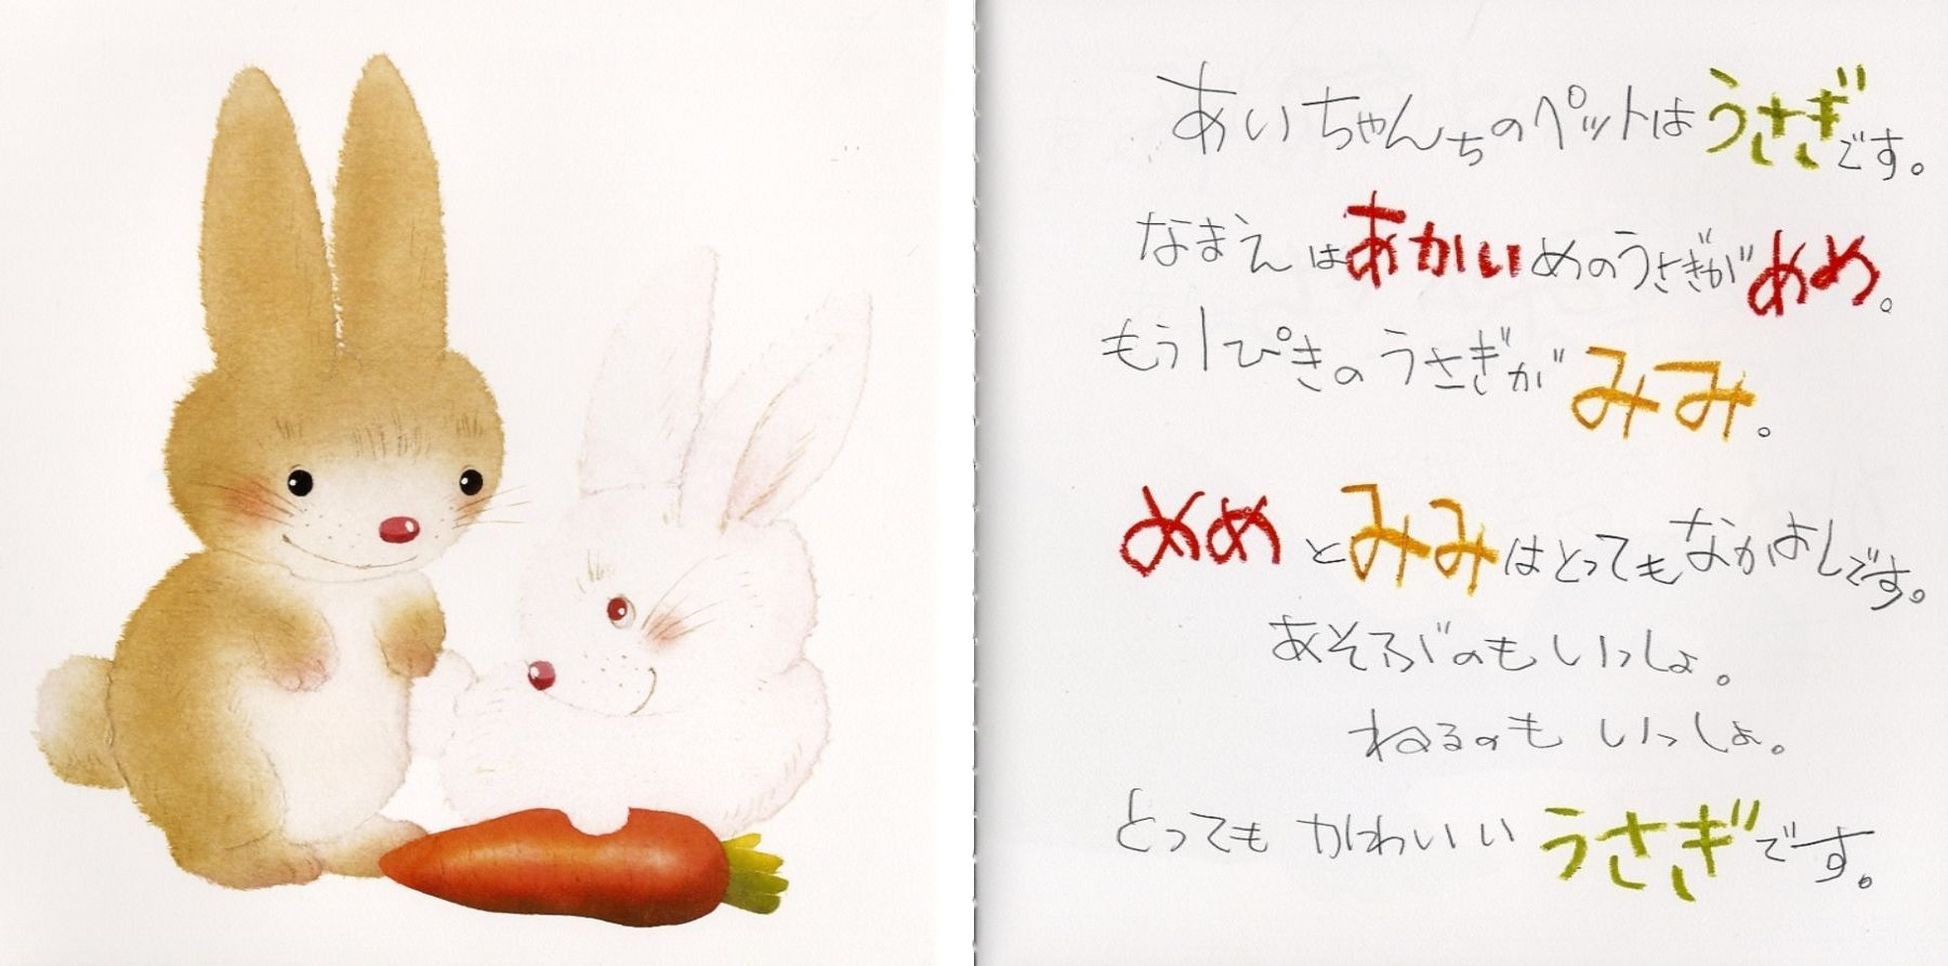 あいちゃんちのペットはうさぎです。
なまえはあかいめのうさぎがめめ。
もう1ぴきのうさぎがみみ。
めめとみみはとってもなかよしです。
あそぶのもいっしょ。
ねるのも いっしょ。
とっても かわいい うさぎです。